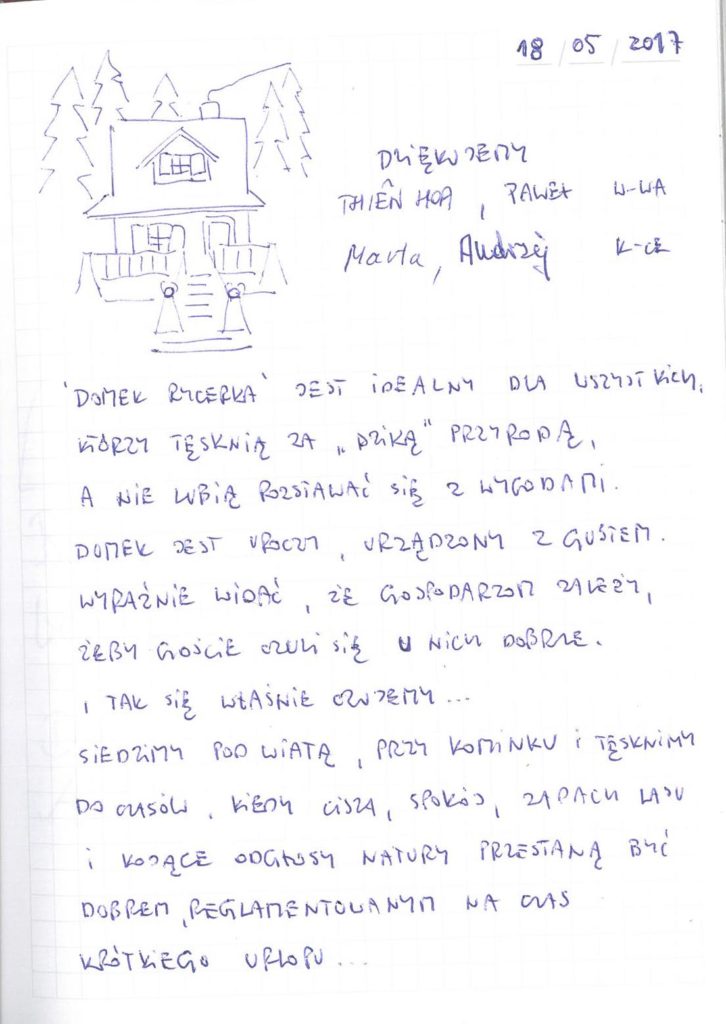 18 / 05 / 2017
DZIĘKUJEMY
THIÊN HOA, PAWEŁ W-WA
Marta, Andrzej K-CE
'DOMEK RYCERKA' JEST IDEALNY DLA WSZYSTKICH,
KTÓRZY TĘSKNIĄ ZA „DZIKĄ" PRZYRODĄ,
A NIE LUBIĄ ROZSTAWAĆ SIĘ Z WYGODAMI.
DOMEK JEST UROCZY, URZĄDZONY Z GUSTEM.
WYRAŹNIE WIDAĆ, ŻE GOSPODARZOM ZALEŻY,
ŻEBY GOŚCIE CZULI SIĘ U NICH DOBRZE.
I TAK SIĘ WŁAŚNIE CZUJEMY...
SIEDZIMY POD WIATĄ, PRZY KOMINKU I TĘSKNIMY
DO CZASÓW, KIEDY CISZA, SPOKÓJ, ZAPACH LASU
I KOJĄCE ODGŁOSY NATURY PRZESTANĄ BYĆ
DOBREM REGLAMENTOWANYM NA CZAS
KRÓTKIEGO URLOPU...